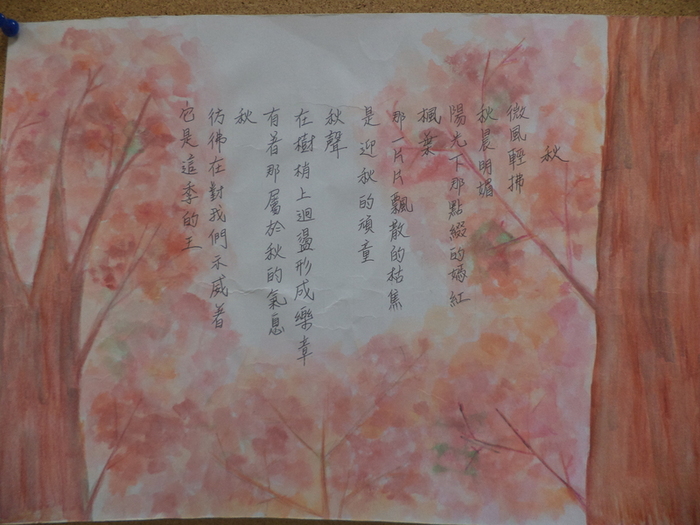 秋
微風輕拂
秋晨明媚
陽光下那點綴的嫣紅
楓葉
那一片片飄散的枯焦
是迎秋的頑童
秋聲
在樹梢上迴盪形成樂章
有著那屬於秋的氣息
秋
彷彿在對我們示威著
它是這季的王